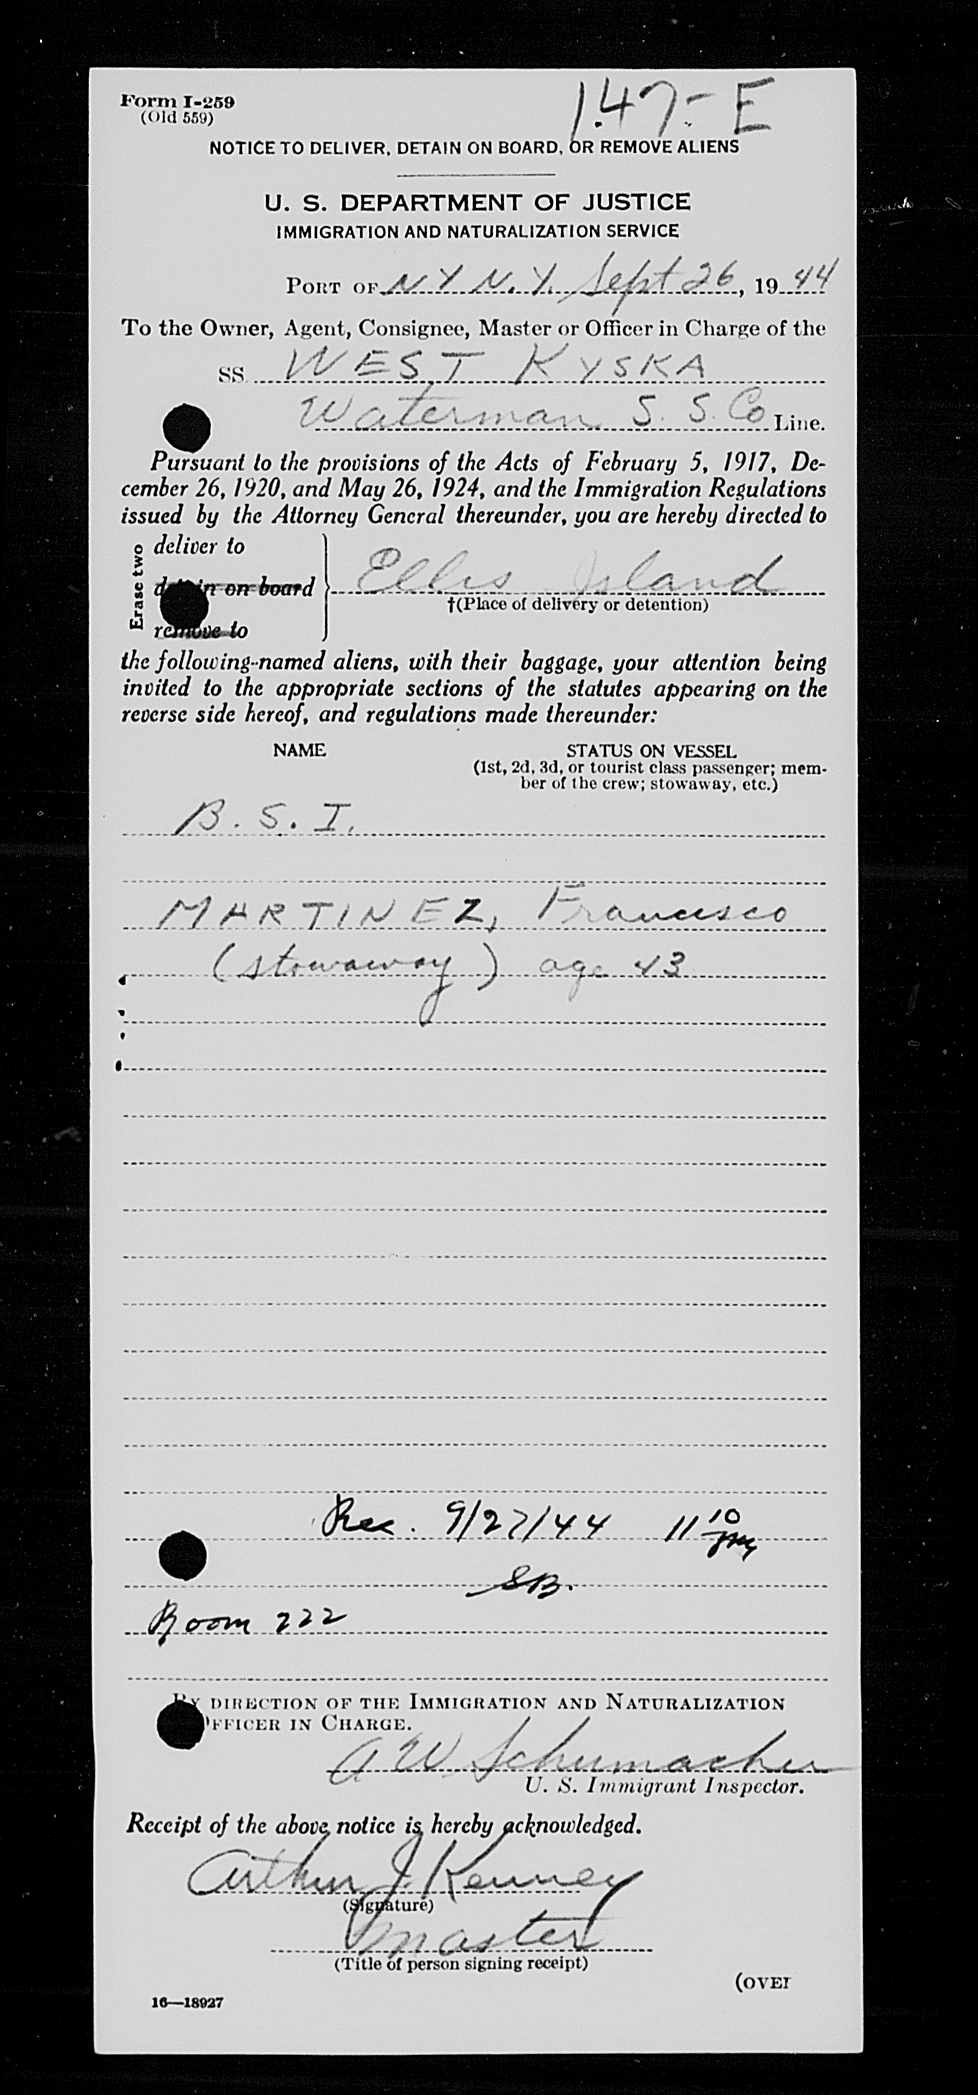 Form I-259
(Old 559)
147-E
NOTICE TO DELIVER, DETAIN ON BOARD, OR REMOVE ALIENS
U. S. DEPARTMENT OF JUSTICE
IMMIGRATION AND NATURALIZATION SERVICE
PORT OF N Y N. Y. Sept 26, 1944
To the Owner, Agent, Consignee, Master or Officer in Charge of the
SS WEST KYSKA
Waterman S. S. Co Line.
Pursuant to the provisions of the Acts of February 5, 1917, De-
cember 26, 1920, and May 26, 1924, and the Immigration Regulations
issued by the Attorney General thereunder, you are hereby directed to
Erase two
deliver to
detain on board
remove to
Ellis Island
†(Place of delivery or detention)
the following-named aliens, with their baggage, your attention being
invited to the appropriate sections of the statutes appearing on the
reverse side hereof, and regulations made thereunder:
NAME STATUS ON VESSEL
(1st, 2d, 3d, or tourist class passenger; mem-
ber of the crew; stowaway, etc.)
B. S. I.
MARTINEZ, Francisco
(stowaway) age 43
Rec. 9/27/44 11 10
SB.
Room 222
BY DIRECTION OF THE IMMIGRATION AND NATURALIZATION
OFFICER IN CHARGE.
A W. Schumacher
U. S. Immigrant Inspector.
Receipt of the above notice is hereby acknowledged.
Arthur J. Kenney
(Signature)
Master
(Title of person signing receipt)
(OVER
16—18927